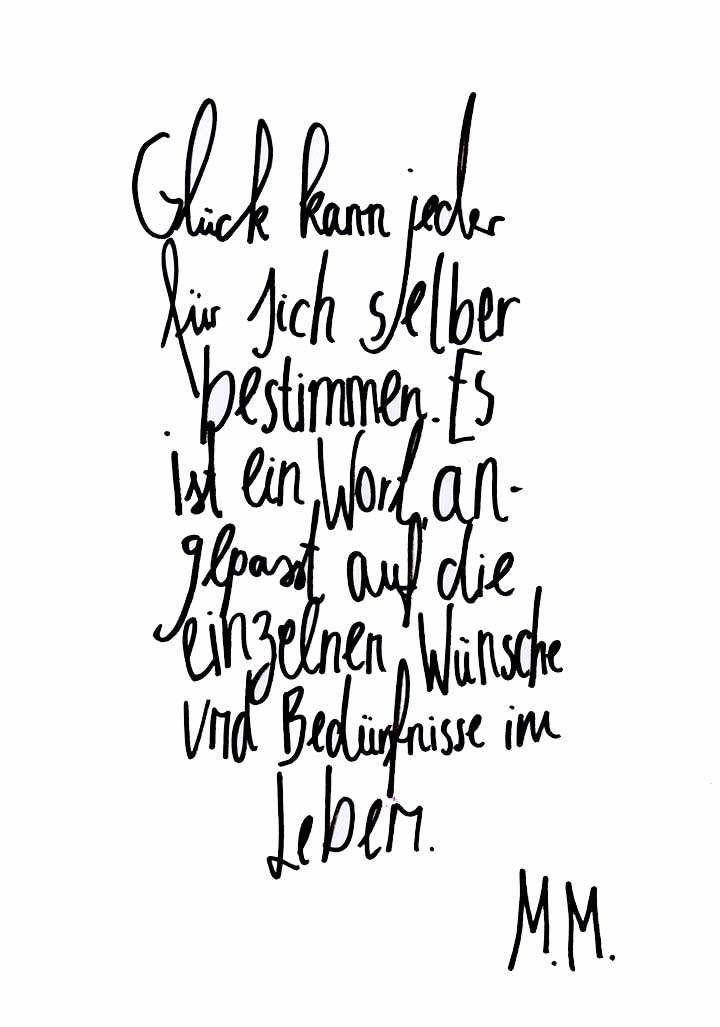 Glück kann jeder
für sich selber
bestimmen. Es
ist ein Wort, an-
gepasst auf die
einzelnen Wünsche
und Bedürfnisse im
Leben.
M.M.